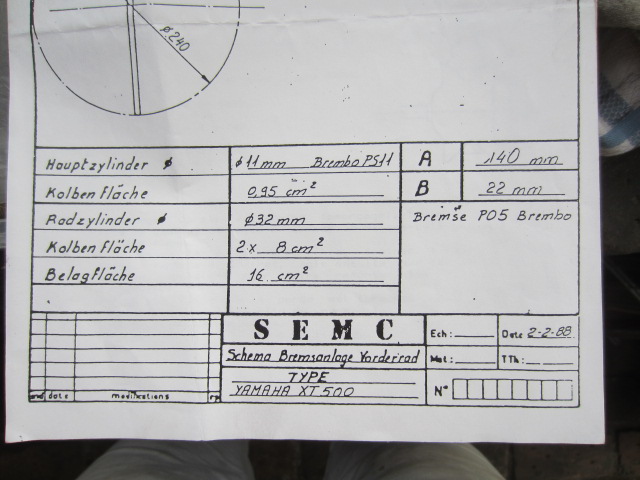 ø 240
Hauptzylinder ø
ø11mm Brembo PS11
A
140 mm
Kolben fläche
0,95 cm²
B
22 mm
Radzylinder ø
ø32mm
Bremse P05 Brembo
Kolben fläche
2x 8 cm²
Belagfläche
16 cm²
SEMC
Ech:
Date 2-2-88
Schema Bremsanlage Vorderrad
Mat:
TTh:
TYPE
YAMAHA XT 500
N°
date
modifications